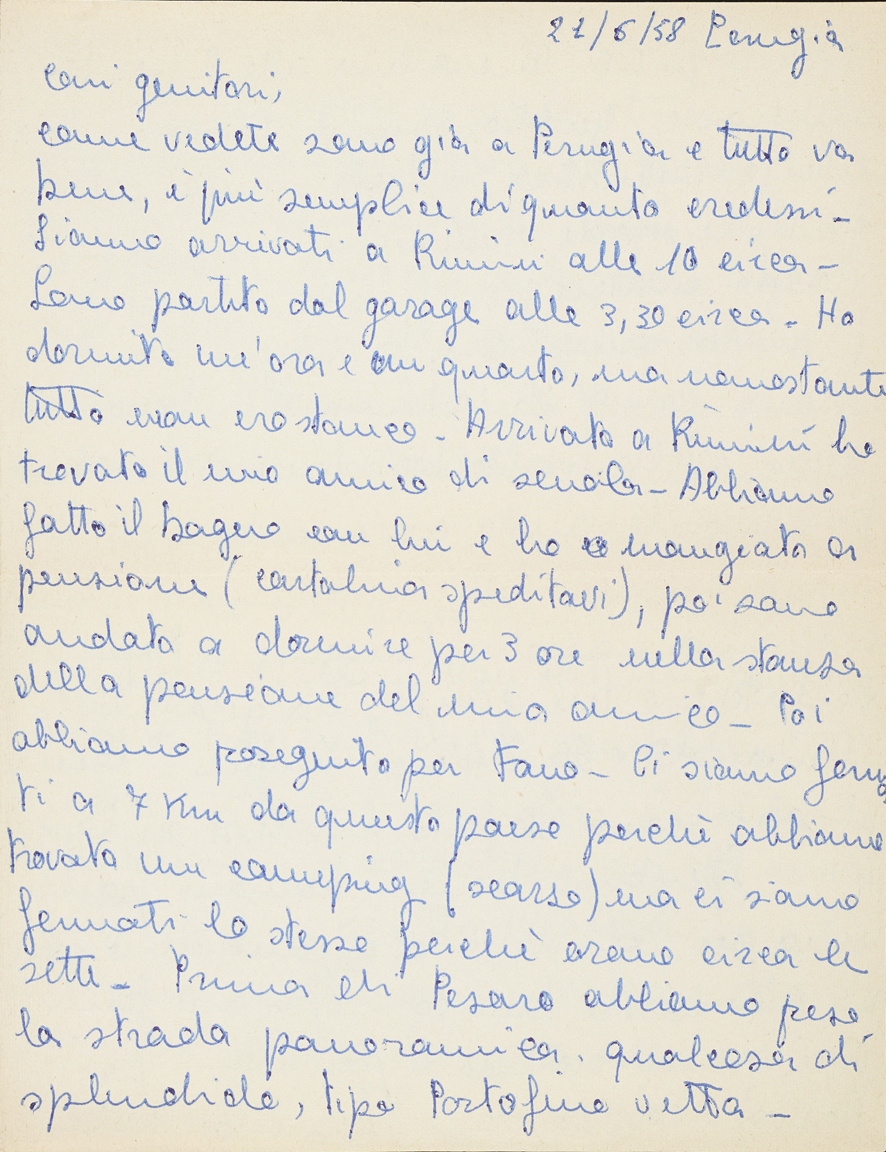 21/6/58 Perugia
Cari genitori,
come vedete sono già a Perugia e tutto va
bene, è più semplice di quanto credessi -
Siamo arrivati a Rimini alle 10 circa -
Sono partito dal garage alle 3,30 circa - Ho
dormito un'ora e un quarto, ma nonostante
tutto non ero stanco - Arrivato a Rimini ho
trovato il mio amico di scuola - Abbiamo
fatto il bagno con lui e ho mangiato a
pensione (cartolina speditavi), poi sono
andato a dormire per 3 ore nella stanza
della pensione del mio amico - Poi
abbiamo proseguito per Fano - Ci siamo ferma
ti a 7 Km da questo paese perchè abbiamo
trovato un camping (scarso) ma ci siamo
fermati lo stesso perchè erano circa le
sette - Prima di Pesaro abbiamo preso
la strada panoramica. qualcosa di
splendido, tipo Portofino vetta -